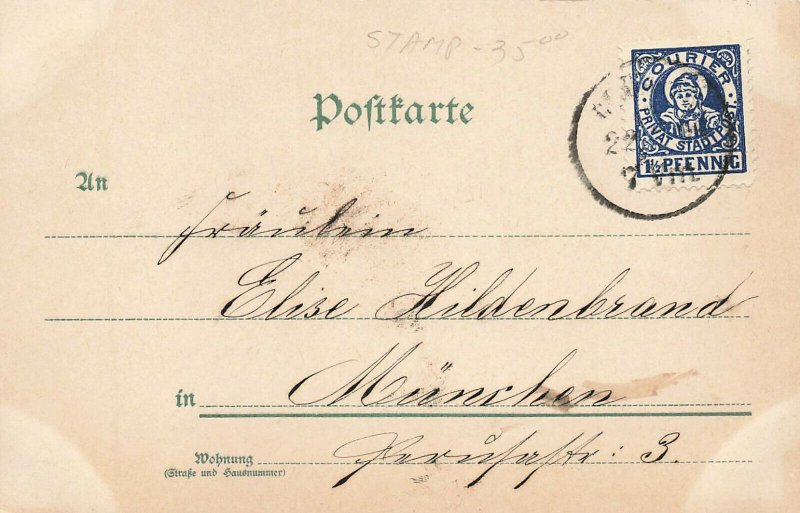 STAMP - 35⁰⁰
COURIER
PRIVAT STADTPOST.
1½ PFENNIG
22
7 VIII
Postkarte
An
Fräulein
Elise Hildenbrand
in München
Wohnung Perusastr: 3.
(Straße und Hausnummer)